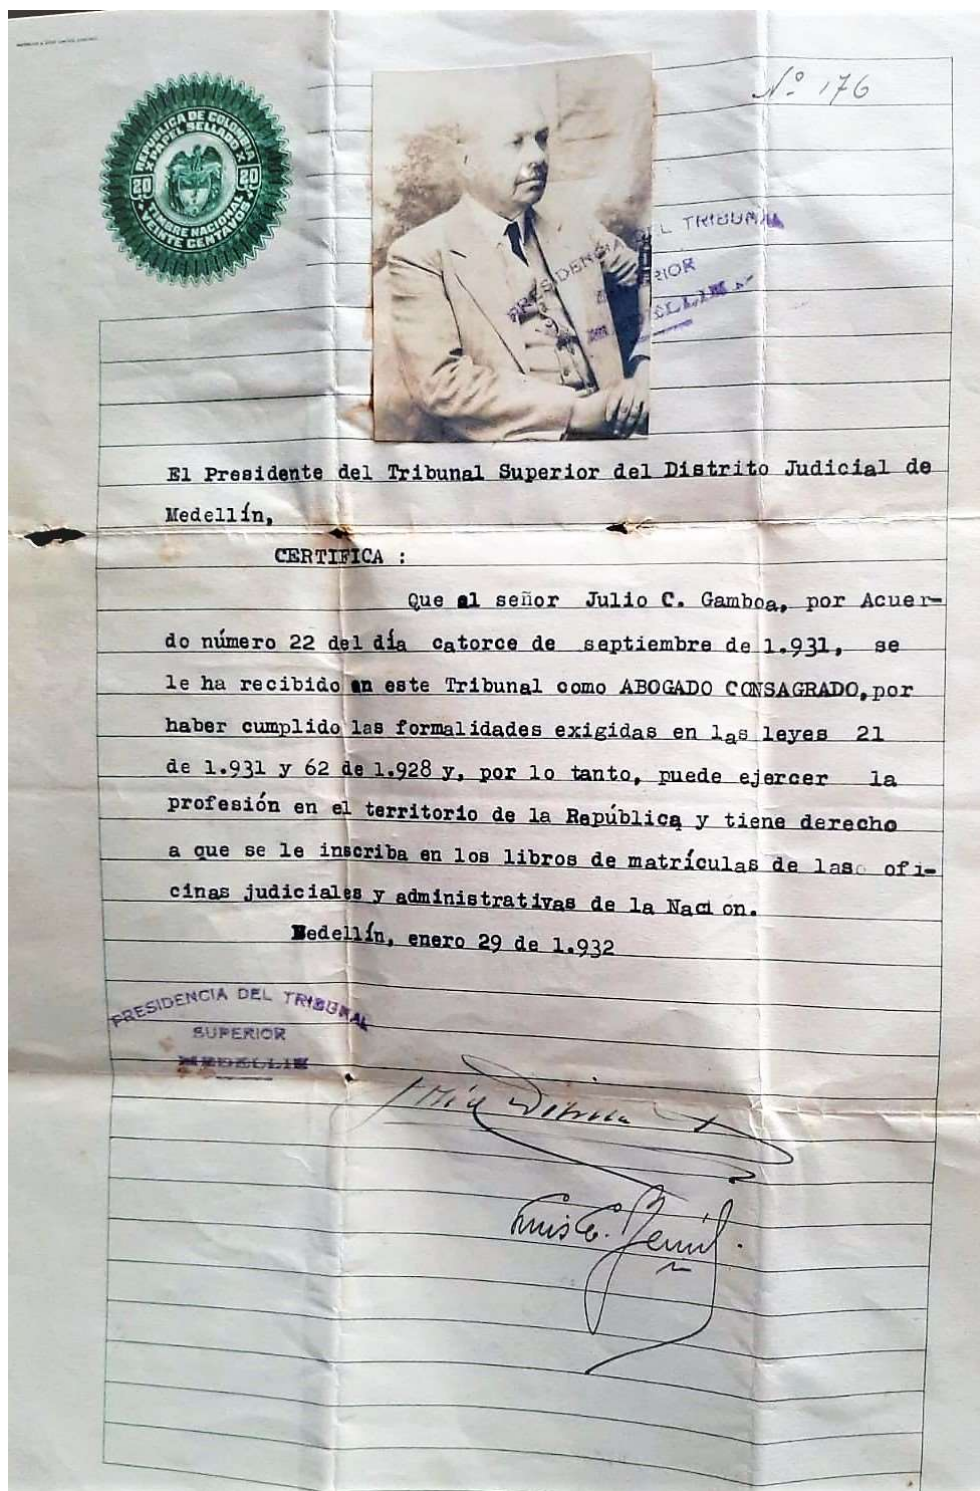 Nº 176
REPUBLICA DE COLOMBIA
PAPEL SELLADO
20 20
TIMBRE NACIONAL
VEINTE CENTAVOS
PRESIDENCIA DEL TRIBUNAL
RIOR
El Presidente del Tribunal Superior del Distrito Judicial de
Medellín,
CERTIFICA :
Que al señor Julio C. Gamboa, por Acuer-
do número 22 del día catorce de septiembre de 1.931, se
le ha recibido en este Tribunal como ABOGADO CONSAGRADO, por
haber cumplido las formalidades exigidas en las leyes 21
de 1.931 y 62 de 1.928 y, por lo tanto, puede ejercer la
profesión en el territorio de la República y tiene derecho
a que se le inscriba en los libros de matrículas de las ofi-
cinas judiciales y administrativas de la Nación.
Medellín, enero 29 de 1.932
PRESIDENCIA DEL TRIBUNAL
SUPERIOR
MEDELLIN
Luis E.